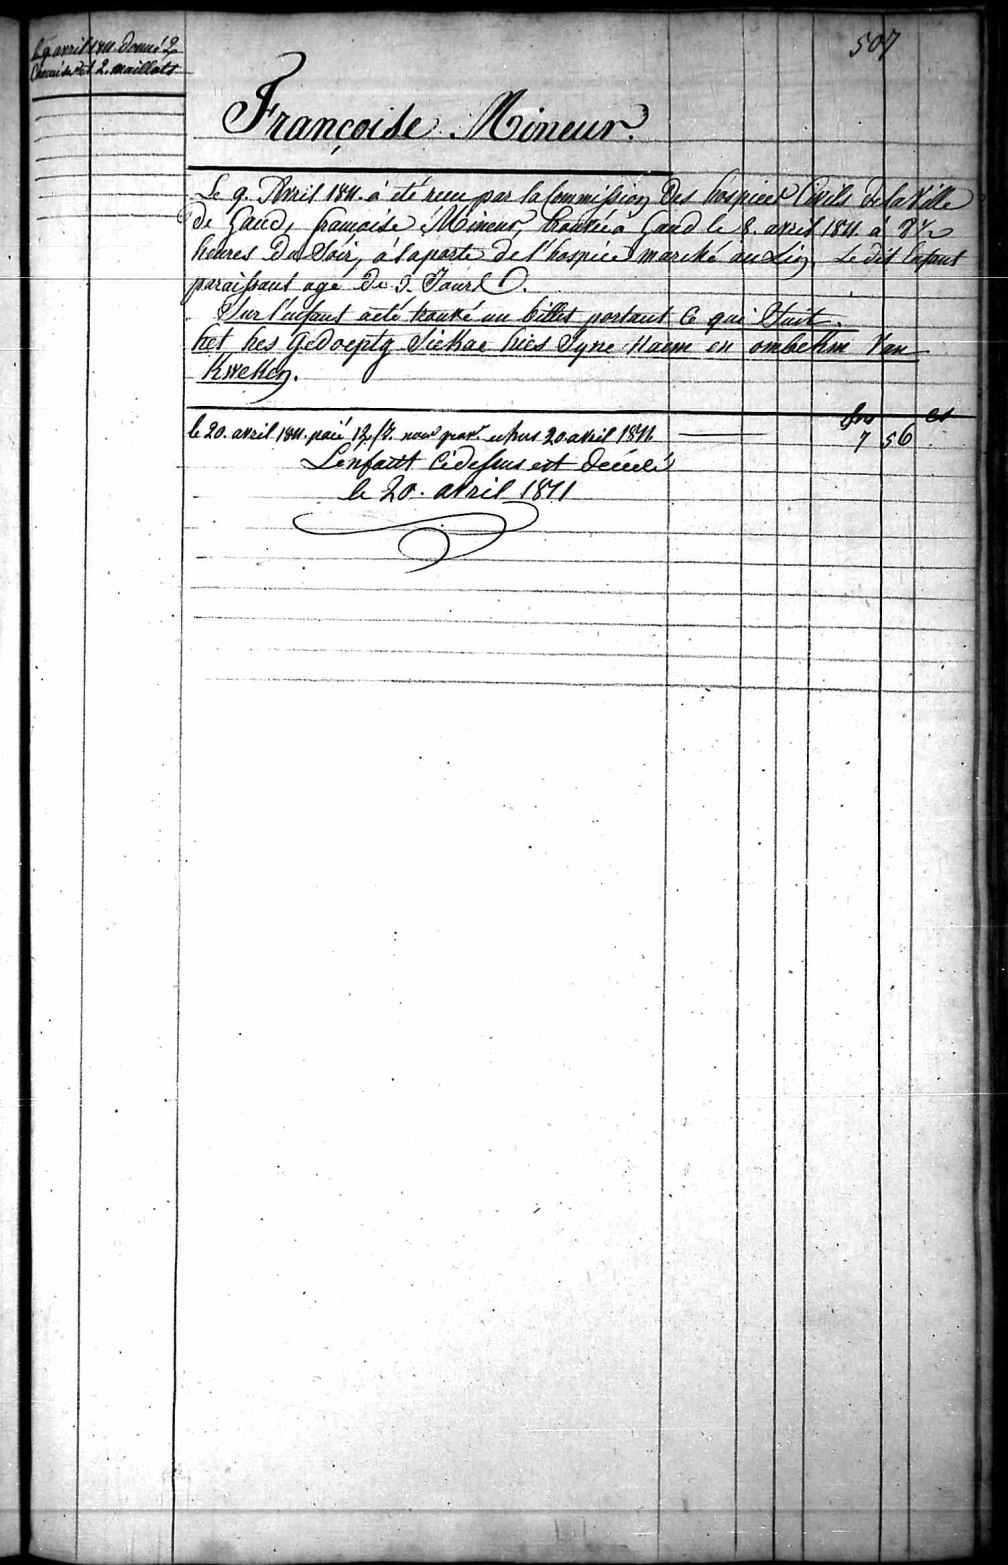 507
le 9 avril 1811. donné 2
Chemises et 2. maillots
Françoise Mineur.
Le 9. Avril 1811. à été recu par la Commission Des hospices Civils de la Ville
de Gand, françoise Mineur, trouvée à Gand le 8. avril 1811 à 8½
heures Du Soir, à la porte de l'hospice marché au Lin. Le dit Enfant
paraissant agé De 3 Jours.
Sur l'enfant a été trouvé un billet portant Ce qui Suit.
het hes Gedoepty Siskae hies Syne Naem en ombekm Van
Kwekey.
frs cs
le 20. avril 1811. paié 12 20 avril 1811 7 56
L'enfant Cidessus est décédé
le 20. avril 1811